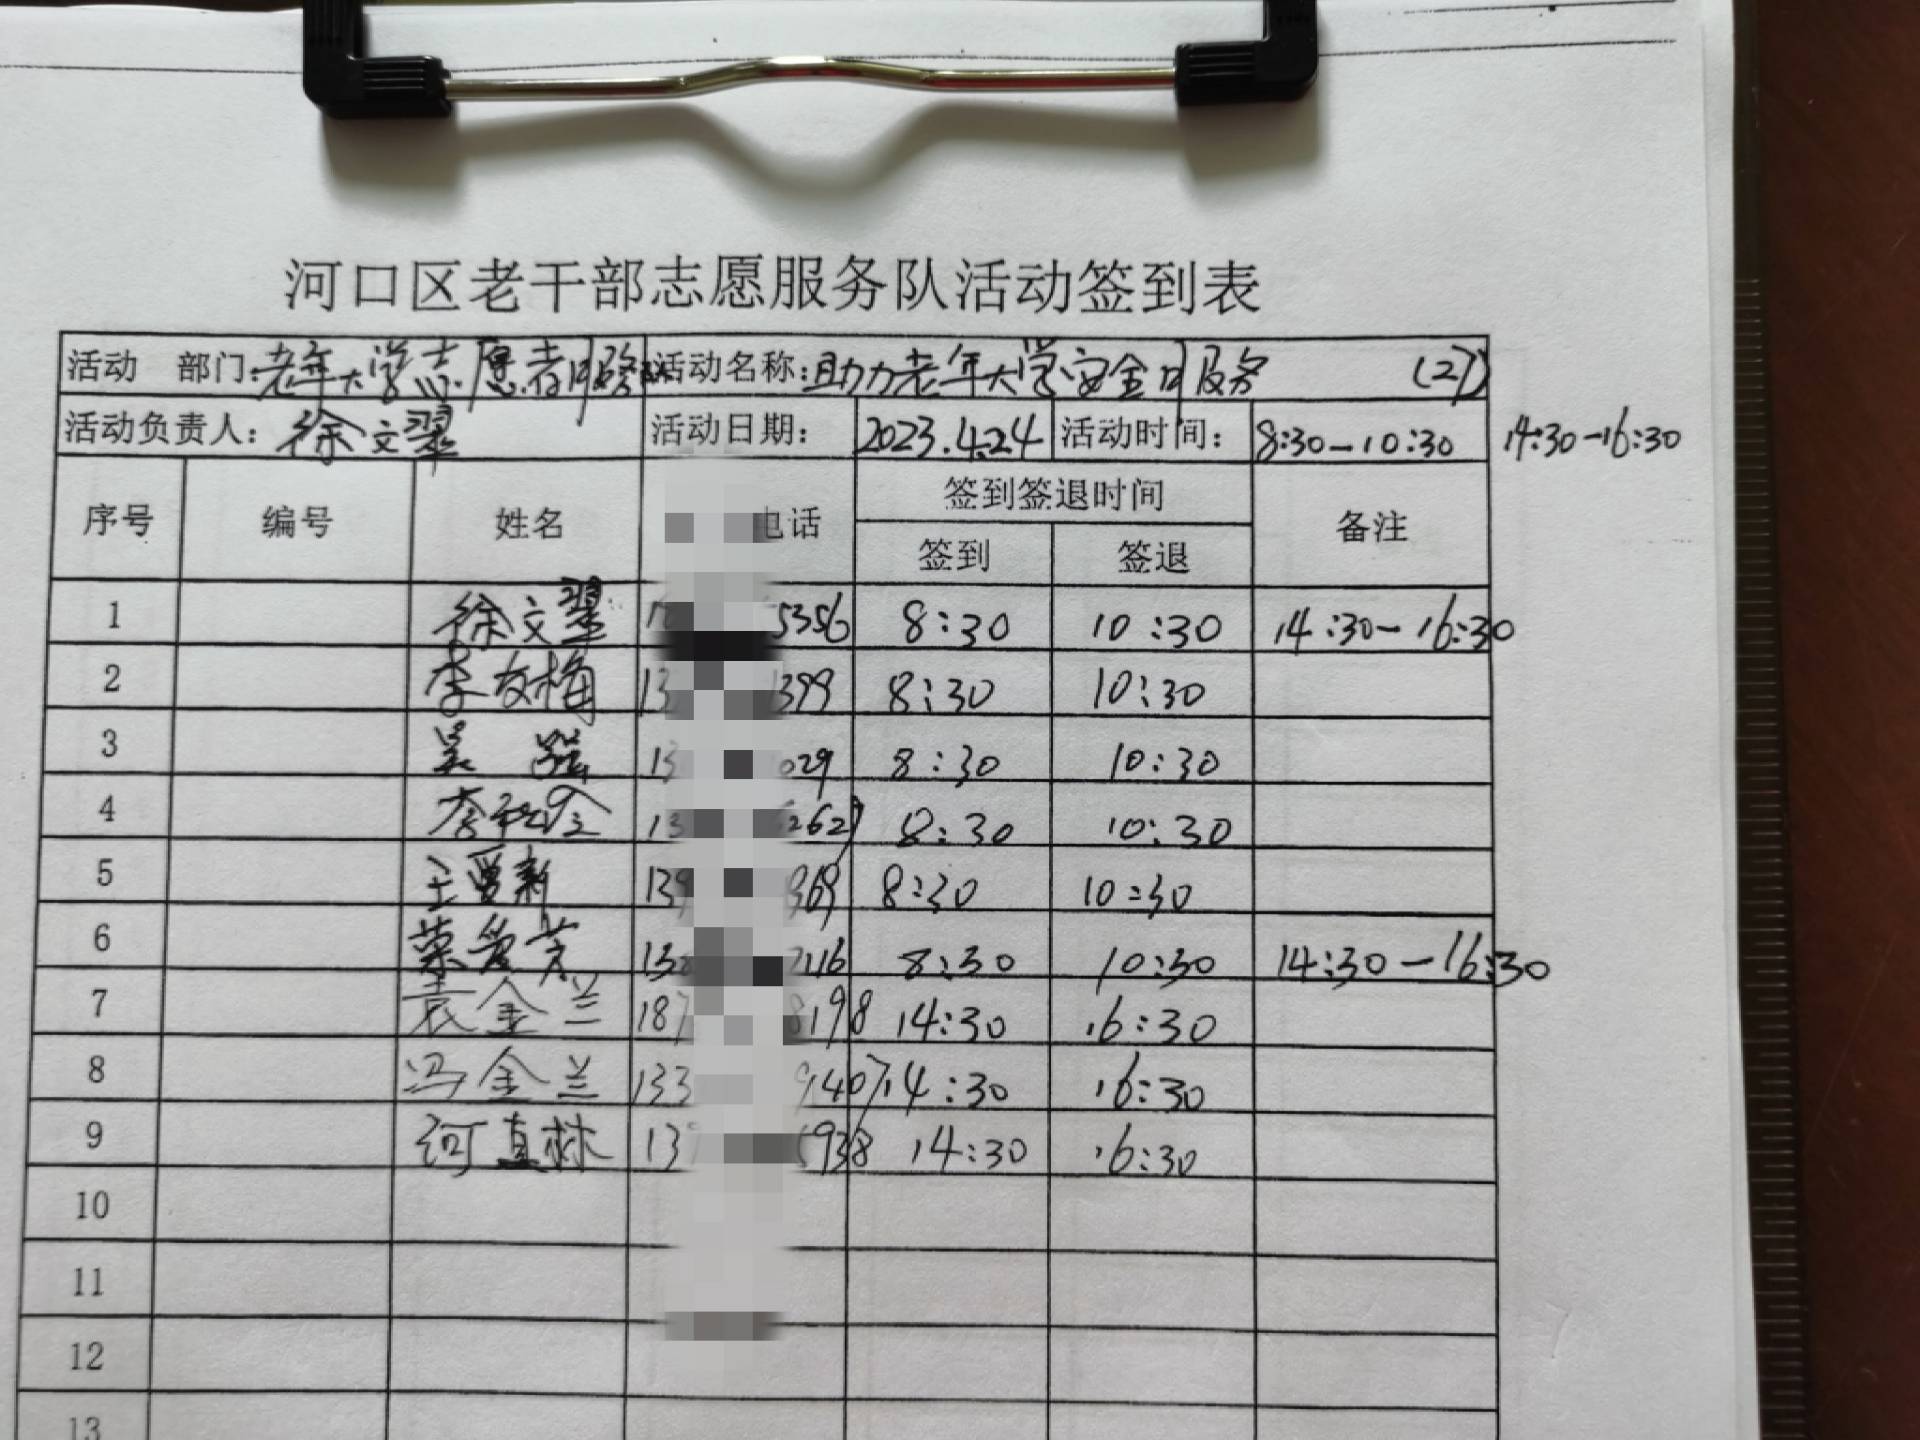 河口区老干部志愿服务队活动签到表
活动 部门:老年大学志愿者服务队 活动名称:助力老年大学安全日服务 (27)
活动负责人:徐文翠 活动日期: 2023.4.24 活动时间: 8:30-10:30 14:30-16:30
序号 编号 姓名 电话 签到签退时间 备注
签到 签退
1 徐文翠 5356 8:30 10:30 14:30-16:30
2 李友梅 13 399 8:30 10:30
3 吴 13 029 8:30 10:30
4 李 13 8:30 10:30
5 王爱新 139 969 8:30 10:30
6 荣爱芳 13 2116 8:30 10:30 14:30-16:30
7 袁金兰 187 8198 14:30 16:30
8 冯金兰 133 9407 14:30 16:30
9 河直林 13 5938 14:30 16:30
10
11
12
13